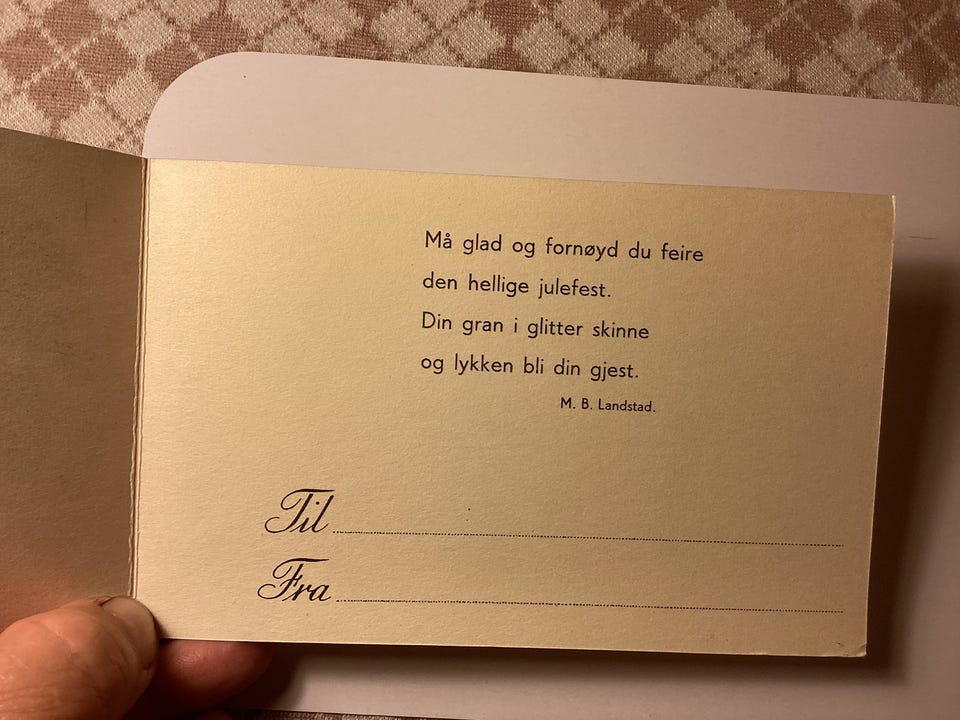 Må glad og fornøyd du feire
den hellige julefest.
Din gran i glitter skinne
og lykken bli din gjest.
M. B. Landstad.
Til
Fra